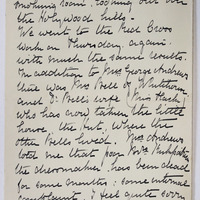 smoking room, looking out over
the Holywood hills –
We went to the Red Cross
work on Thursday, again
with much the same results.
In addition to Mrs George Andrews
there was Mrs Bell of
and Dr Bell's wife, Miss
who has now taken the little
house, the Hut, where the
other Bells lived. Mrs Andrews
told me that poor Mrs
the has been dead
for some months, some internal
complaint. I feel quite sorry